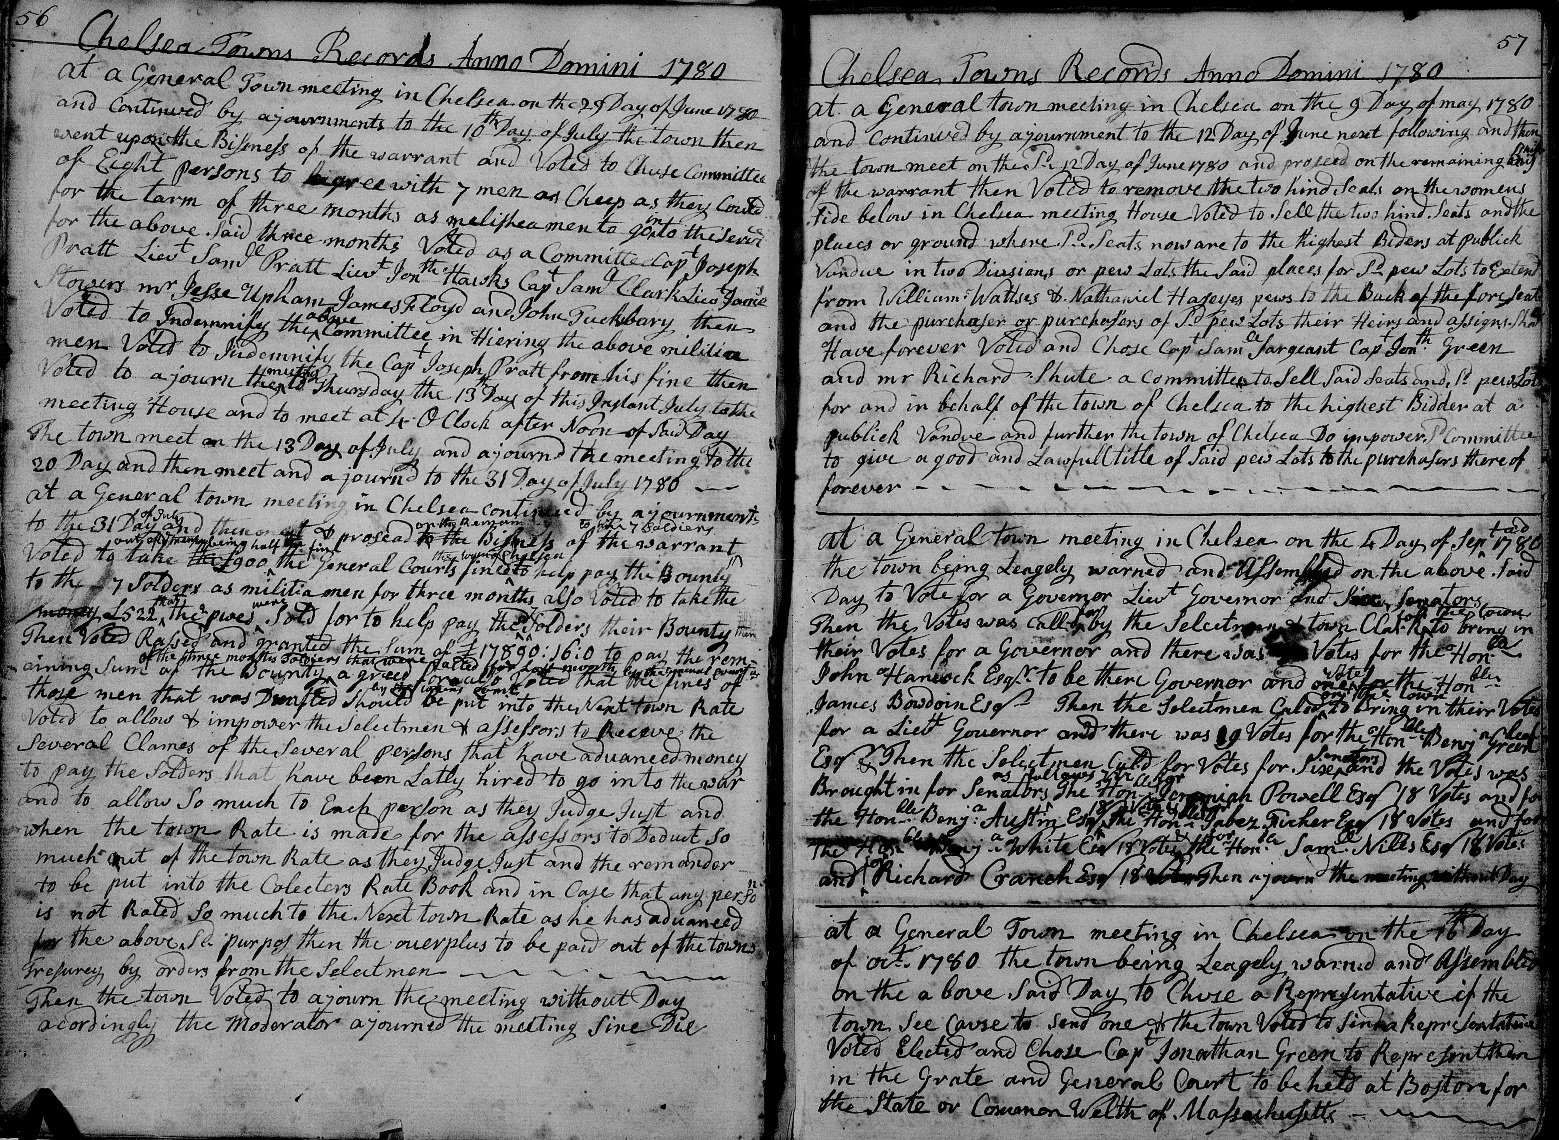 56
Chelsea Towns Records Anno Domini 1780
at a General Town meeting in Chelsea on the 29 Day of June 1780
and Continued by ajournments to the 10th Day of July the town then
went upon the Bissness of the warrant and Voted to Chuse Committee
of Eight persons to agree with 7 men as Cheep as they Could
for the tarm of three months as melishea men to go into the Servis
for the above Said three months Voted as a Committee Capt Joseph
Pratt Lievt Saml Pratt Lievt Jonth Hawks Capt Saml Clark Lievt Jams
Stowers mr Jesse Upham James Floyd and John Tuckbary then
Voted to Indemnify the above Committee in Hiering the above militia
men Voted to Indemnify the Capt Joseph Pratt from his fine then
Voted to ajourn the meeting to Thursday the 13th Day of this Instant July to the
meeting House and to meet at 4 O Clock after Noon of Said Day
The town meet on the 13 Day of July and ajournd the meeting to the
20 Day and then meet and ajournd to the 31 Day of July 1780
at a General town meeting in Chelsea continued by ajournments
to the 31 Day of July and then & prosead on the Remain to the Bissness of the warrant
Voted to take £900 the General Courts fined the town of Chelsea to help pay the Bounty
to the 7 Solders as militia men for three months also Voted to take the
money £522 that the pwes were Sold for to help pay the Solders their Bounty then
Then Voted Rased and granted the Sum of £17890:16:0 to pay the rem-
aining Sum of the Bounty agreed for also Voted that the fines of
of the three months Soldiers that were
those men that was Drafted Should be put into the Next town Rate
Voted to allow & impower the Selectmen & assessors to Receve the
Several Clames of the Several persons that have advanced money
to pay the Solders that have been Latly hired to go into the war
and to allow So much to Each person as they Judge Just and
when the town Rate is made for the assessors to Deduct So
much out of the town Rate as they Judge Just and the remander
to be put into the Colecters Rate Book and in Case that any person
is not Rated So much to the Next town Rate as he has advanced
for the above Sd purpos then the overplus to be paid out of the towns
Tresurey by orders from the Selectmen
Then the town Voted to ajourn the meeting without Day
acordingly the moderator ajourned the meeting Sine Die
57
Chelsea Towns Records Anno Domini 1780
at a General town meeting in Chelsea on the 9 Day of may 1780
and continued by ajournment to the 12 Day of June next following and then
the town meet on the Sd 12 Day of June 1780 and prosead on the remaining
of the warrant then Voted to remove the two hind Seats on the womens
Side below in Chelsea meeting House Voted to Sell the two hind Seats and the
places or ground where Sd Seats now are to the Highest Biders at publick
Vandue in two Divisions or pew Lots the Said places for Sd pew Lots to Extend
from William Wattses & Nathaniel Haseyes pews to the Back of the fore Seats
and the purchaser or purchasers of Sd pew Lots their Heirs and assigns Shall
Have forever Voted and Chose Capt Samll Sargeant Capt Jonth Green
and mr Richard Shute a Committee to Sell Said Seats and Sd pew Lots
for and in behalf of the town of Chelsea to the highest Bidder at a
publick Vandue and further the town of Chelsea Do impower Sd Committee
to give a good and Lawfull title of Said pew Lots to the purchasers there of
forever
at a General town meeting in Chelsea on the 4 Day of Sept 1780
the town being Leagely warned and Assembled on the above Said
Day to Vote for a Governor Lievt Governor and Six Senators
Then the Votes was Calld for by the Selectmen & town Clark for the town to bring in
their Votes for a Governor and there was Votes for the Honble
John Hancock Esqr to be there Governor and one vote for the Honble
James Bowdoin Esqr Then the Selectmen Caled on the town to Bring in their Votes
for a Lievt Governor and there was 19 Votes for the Honble Benja Green
Esqr & Then the Selectmen Cald for Votes for Six Senators and the Votes was
Brought in for Senators as follows viz The Honble Jeremiah Powell Esqr 18 Votes and for
the Honble Benja Austin Esqr 18 Votes the Honble Jabez Fisher Esqr 18 Votes and for
the Honble Benja White Esqr 18 Votes & for the Honble Saml Nills Esqr 18 Votes
and for Richard Cranch Esqr 18 Votes Then ajournd the meeting without Day
at a General Town meeting in Chelsea on the 16th Day
of oct 1780 the town being Leagely warned and Assembled
on the above Said Day to Chuse a Representative if the
town See Cause to Send one & the town Voted to Sind a Representative
Voted Elected and Chose Capt Jonathan Green to Represent them
in the Grate and General Court to be held at Boston for
the State or Common Welth of Massachusetts